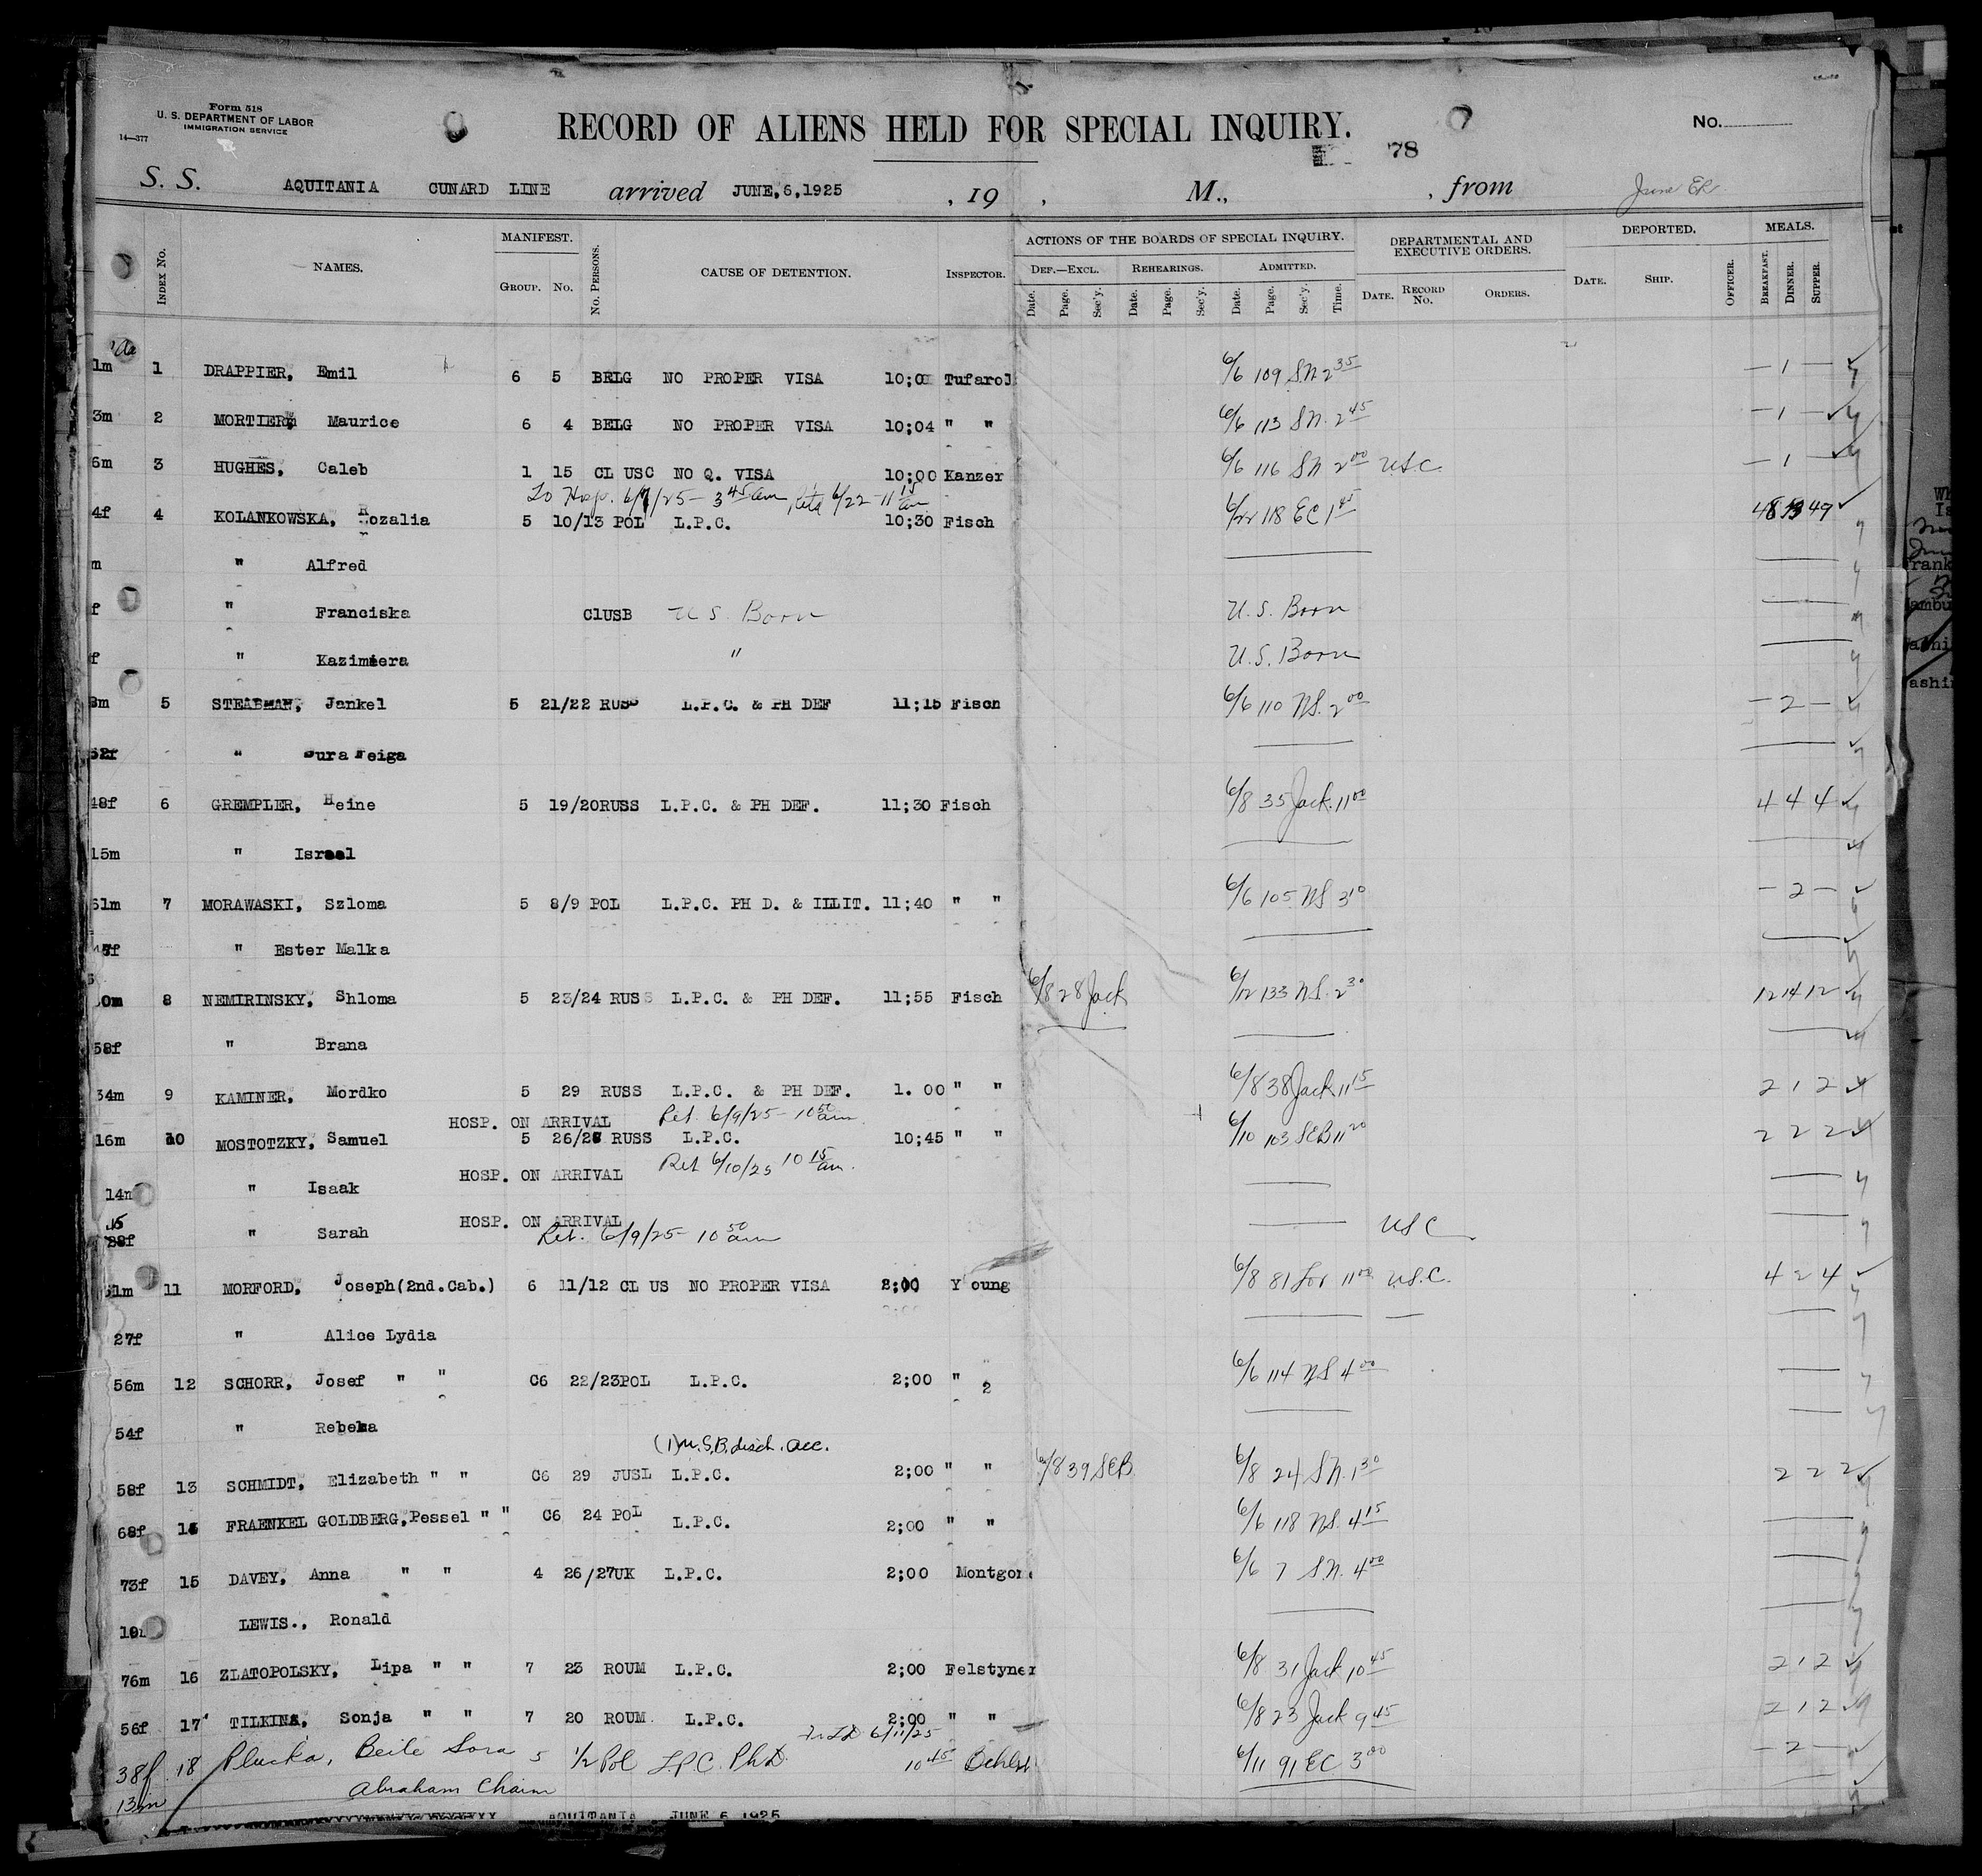 Form 518
U. S. DEPARTMENT OF LABOR
IMMIGRATION SERVICE
14—377
RECORD OF ALIENS HELD FOR SPECIAL INQUIRY.
No.
78
S. S. AQUITANIA CUNARD LINE arrived JUNE,6,1925 , 19 , M., , from
INDEX No. NAMES. MANIFEST. GROUP. No. No. PERSONS. CAUSE OF DETENTION. INSPECTOR. ACTIONS OF THE BOARDS OF SPECIAL INQUIRY. DEF.—EXCL. Date. Page. Sec'y. REHEARINGS. Date. Page. Sec'y. ADMITTED. Date. Page. Sec'y. Time. DEPARTMENTAL AND EXECUTIVE ORDERS. DATE. RECORD No. ORDERS. DEPORTED. DATE. SHIP. OFFICER. MEALS. BREAKFAST. DINNER. SUPPER.
1m 1 DRAPPIER, Emil 6 5 BELG NO PROPER VISA 10;0 Tufarol 6/6 109 S.N. 2 35 — 1 —
3m 2 MORTIER, Maurice 6 4 BELG NO PROPER VISA 10;04 " " 6/6 113 S.N. 2 45 — 1 —
6m 3 HUGHES, Caleb 1 15 CL USC NO Q. VISA 10;00 Kanzer 6/6 116 S.N. 2 00 USC — 1 —
To Hosp. 6/7/25 - 3 45 am, 6/22 - 11 15 am
4f 4 KOLANKOWSKA, Rozalia 5 10/13 POL L.P.C. 10;30 Fisch 6/22 118 EC 1 45 49
m " Alfred
f " Franciska ClUSB U.S. Born U.S. Born
f " Kazimiera " U.S. Born
3m 5 STEABMAN, Jankel 5 21/22 RUSS L.P.C. & PH DEF 11;15 Fisch 6/6 110 N.S. 2 00 — 2 —
52f " ura Feiga
48f 6 GREMPLER, Heine 5 19/20RUSS L.P.C. & PH DEF. 11;30 Fisch 6/8 35 Jack. 11 00 4 4 4
15m " Israel
51m 7 MORAWASKI, Szloma 5 8/9 POL L.P.C. PH D. & ILLIT. 11;40 " " 6/6 105 N.S. 3 10 — 2 —
" Ester Malka
0m 8 NEMIRINSKY, Shloma 5 23/24 RUSS L.P.C. & PH DEF. 11;55 Fisch 6/8 28 Jack 6/12 133 N.S. 2 30 12 14 12
58f " Brana
34m 9 KAMINER, Mordko 5 29 RUSS L.P.C. & PH DEF. 1. 00 " " 6/8 38 Jack 11 15 2 1 2
HOSP. ON ARRIVAL Ret. 6/9/25 - 10 50 am.
16m 10 MOSTOTZKY, Samuel 5 26/28 RUSS L.P.C. 10;45 " " 6/10 103 SEB 11 20 2 2 2
HOSP. ON ARRIVAL Ret 6/10/25 10 15 am.
14m " Isaak
HOSP. ON ARRIVAL
28f " Sarah Ret. 6/9/25 - 10 50 am USC
31m 11 MORFORD, Joseph(2nd.Cab.) 6 11/12 CL US NO PROPER VISA 2;00 Young 6/8 81 Lor 11 00 U.S.C. 4 2 4
27f " Alice Lydia
56m 12 SCHORR, Josef " " C6 22/23POL L.P.C. 2;00 " 2 6/6 114 N.S 4 00
54f " Rebeka
(1) U.S.B. disch. acc.
58f 13 SCHMIDT, Elizabeth " " C6 29 JUSL L.P.C. 2;00 " " 6/8 39 SEB 6/8 24 S.N. 1 30 2 2 2
68f 14 FRAENKEL GOLDBERG,Pessel " " C6 24 POL L.P.C. 2;00 " " 6/6 118 N.S. 4 15
73f 15 DAVEY, Anna " " 4 26/27UK L.P.C. 2;00 Montgom 6/6 7 S.N. 4 00
19 LEWIS., Ronald
76m 16 ZLATOPOLSKY, Lipa " " 7 23 ROUM L.P.C. 2;00 Felstyner 6/8 31 Jack 10 45 2 1 2
56f 17 TILKINA, Sonja " " 7 20 ROUM. L.P.C. 2;00 " " 6/8 23 Jack 9 45 2 1 2
6/11/25
38f 18 Plucka, Beile Sora 5 1/2 Pol L.P.C. Ph D. 10 45 6/11 91 EC 3 00 — 2 —
13m Abraham Chaim
AQUITANIA JUNE 6 1925